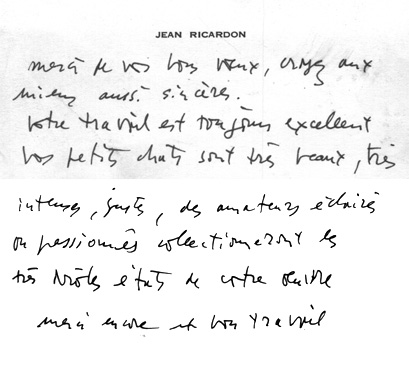 JEAN RICARDON
merci de vos bons vœux, croyez aux
miens aussi sincères.
Votre travail est toujours excellent
Vos petits chats sont très beaux, très
intenses, justes, des amateurs éclairés
ou passionnés collectionneront les
très drôles états de votre œuvre
merci encore et bon travail